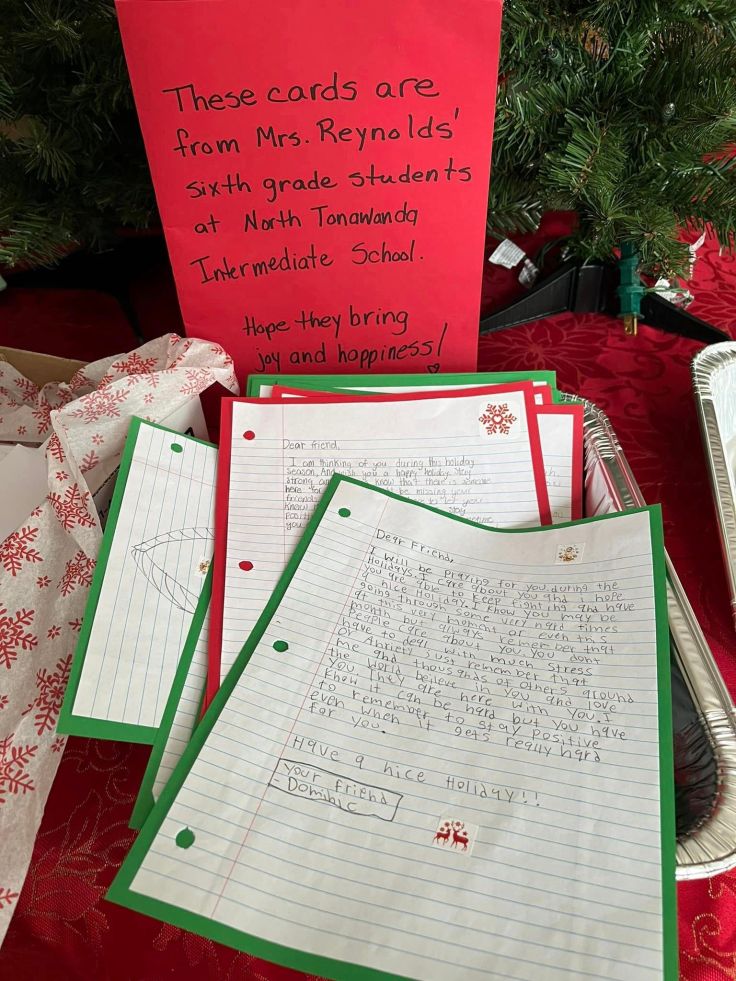 These cards are
from Mrs. Reynolds'
sixth grade students
at North Tonawanda
Intermediate School.
Hope they bring
joy and happiness!
Dear friend,
I am thinking of you during this holiday
season. And wish you a happy holiday. Stay
strong
know that there is someone
here for
be missing your
friends
to let you
know
positive
you
Dear Friend,
I will be praying for you during the
Holidays. I care about you and i hope
you are able to keep fighting and have
a nice Holiday. I know you may be
going through some very hard times
at this very moment or even this
month but always remember that
People care about you. You dont
have to deal with much stress
or Anxiety Just remember that
me and thousands of others around
the world believe in you and love
you. They are here with you. I
know it can be hard but you have
to remember to stay positive
even when it gets really hard
for you.
Have a nice Holiday!!
Your friend
- Dominic